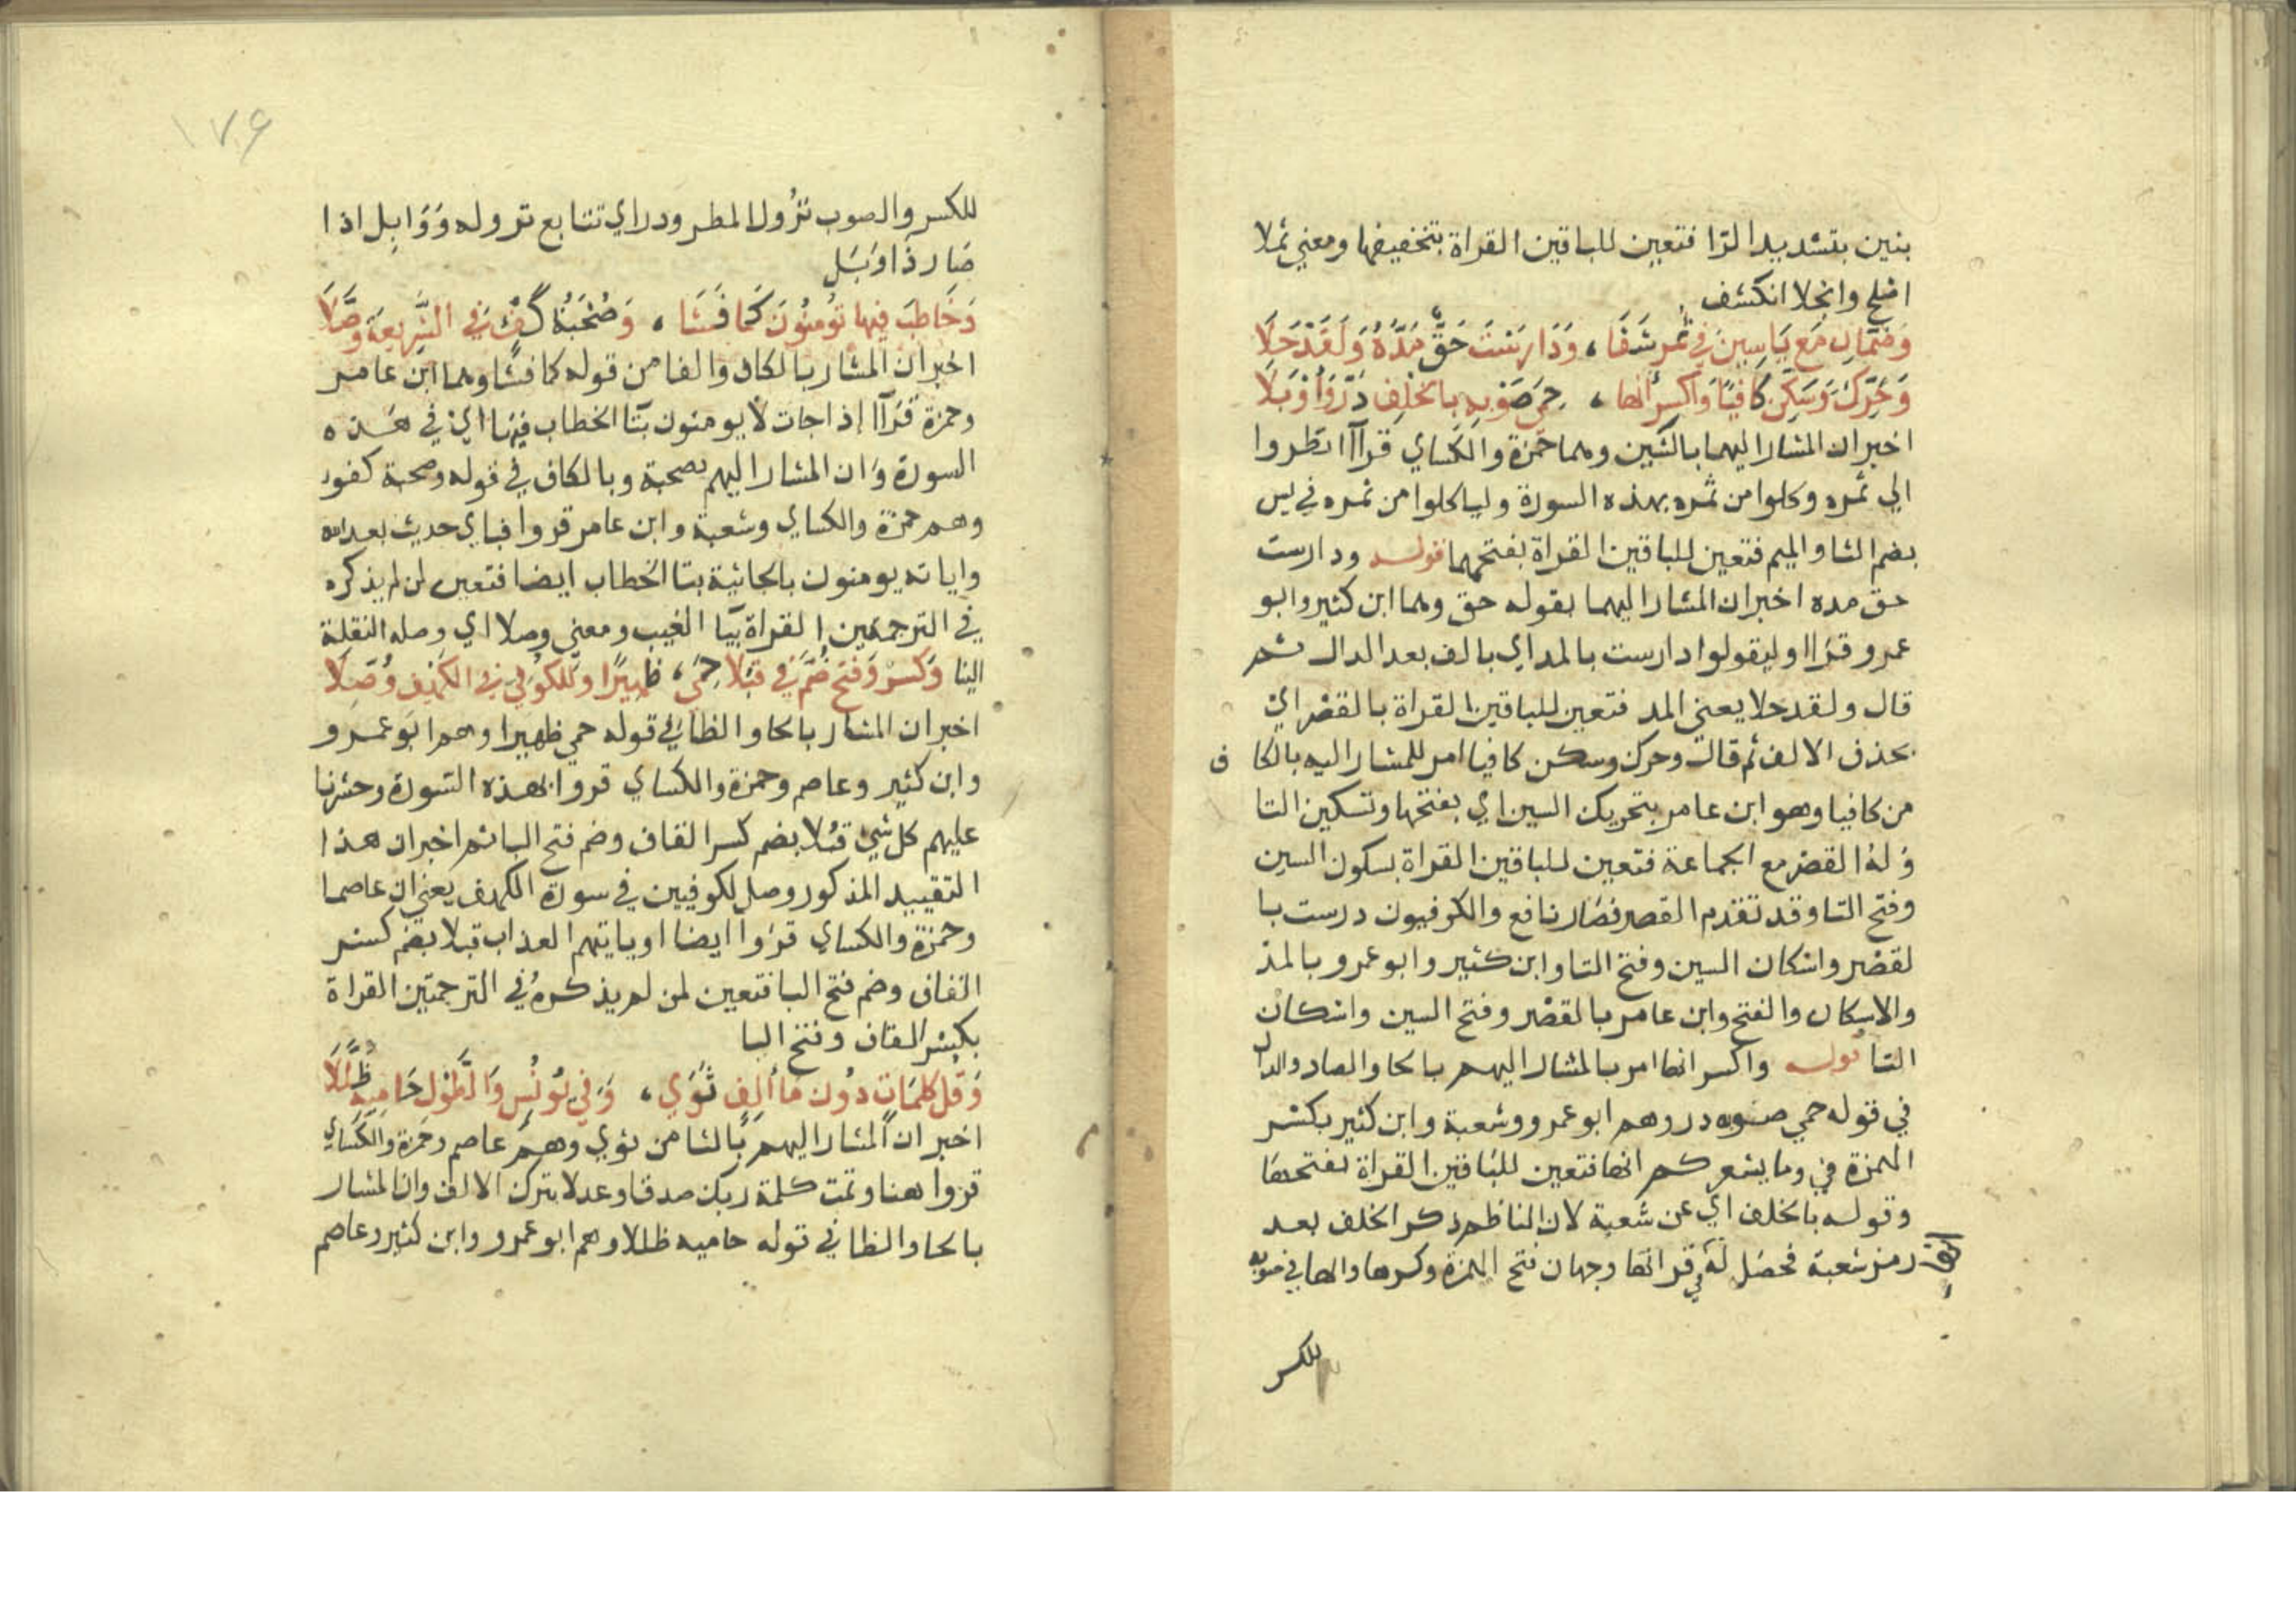 بنين بتشديد الرا فتعين للباقين القراة بتخفيفها ومعني ثملا
اصلح وانجلا انكشف
وَضَمَّانِ مَع يَاسِينَ فِي ثُمُرٍ شَفَا ، وَدَارَسْتَ حَقٌّ مَدَّهُ وَلَقَدْ حَلَا
وَحَرِّكْ وَسَكِّنْ كَافِيًا وَاكْسِر انها ، حِمَى صَوْبِهِ بالخلف دَرَّ وَأَوْبَلَا
اخبر ان المشار اليهما بالشين وهما حمزة والكساي قرآا انظروا
الي ثمره وكلوا من ثمره بهذه السورة ولياكلوا من ثمره في يس
بضم الثا والميم فتعين للباقين القراة بفتحهما قوله ودارست
حق مده اخبر ان المشار اليهما بقوله حق وهما ابن كثير وابو
عمرو قراا وليقولوا دارست بالمد اي بالف بعد الدال ثم
قال ولقد حلا يعني المد فتعين للباقين القراة بالقصر اي
بحذف الالف ثم قال وحرك وسكن كافيا امر للمشار اليه بالكاف
من كافيا وهو ابن عامر بتحريك السين اي بفتحها وتسكين التا
وله القصر مع الجماعة فتعين للباقين القراة بسكون السين
وفتح التا وقد تقدم القصر فصار نافع والكوفيون درست با
لقصر واسكان السين وفتح التا وابن كثير وابو عمرو بالمد
والاسكان والفتح وابن عامر بالقصر وفتح السين واسكان
التا قوله واكسر انها امر بالمشار اليهم بالحا والصاد والدال
في قوله حمي صوبه در وهم ابو عمرو وشعبة وابن كثير بكسر
الهمزة في وما يشعركم انها فتعين للباقين القراة بفتحها
وقوله بالخلف اي عن شعبة لان الناظم ذكر الخلف بعد
رمز شعبة فحصل له في قراة انها وجهان فتح الهمزة وكسرها والها في صوبه
للكسر
١٧٦
للكسر والصوب نزول المطر ودر اي تتابع نزوله وَوَابِل اذا
صَار ذَا وَبَل
وَخَاطَبَ فيها تؤمنُونَ كَمَا فَشَا ، وَصُحْبَةُ كُفْؤٍ فِي الشَّرِيعَةِ وَصَّلَا
اخبر ان المشار بالكاف والفا من قوله كما فشا وهما ابن عامر
وحمزة قرآا إذا جات لا يومنون بتا الخطاب فيها اي في هذه
السورة وان المشار اليهم بصحبة وبالكاف في قوله وصحبة كفور
وهم حمزة والكساي وشعبة وابن عامر قروا فباي حديث بعد الله
واياته يومنون بالجاثية بتا الخطاب ايضا فتعين لمن لم يذكره
في الترجمتين القراة بيا الغيب ومعني وصلا اي وصله النقلة
الينا وَكَسْرٌ وَفَتْحٌ ضُمَّ فِي قِبَلًا حِمَى ، ظَهِيرًا وللكُوفي في الكَهْفِ وُصِّلَا
اخبر ان المشار بالحا والظا في قوله حمي ظهيرا وهم ابو عمرو
وابن كثير وعاصم وحمزة والكساي قروا بهذه السورة وحشرنا
عليهم كل شيئ قبلا بضم كسر القاف وضم فتح البا ثم اخبر ان هذا
التقييد المذكور وصل لكوفيين في سورة الكهف يعني ان عاصما
وحمزة والكساي قروا ايضا او ياتيهم العذاب قبلا بضم كسر
القاف وضم فتح البا فتعين لمن لم يذكره في الترجمتين القراة
بكسر القاف وفتح البا
وَقُل كلمَات دُون مَا ألف ثَوَى ، وَفِي يُونُس وَالطَّوْل حَامِيه ظَلَّلَا
اخبر ان المشار اليهم بالثا من ثوي وهم عاصم وحمزة والكساي
قروا هنا وتمت كلمة ربك صدقا وعدلا بترك الالف وان المشار
بالحا والظا في قوله حاميه ظللا وهم ابو عمرو وابن كثير وعاصم